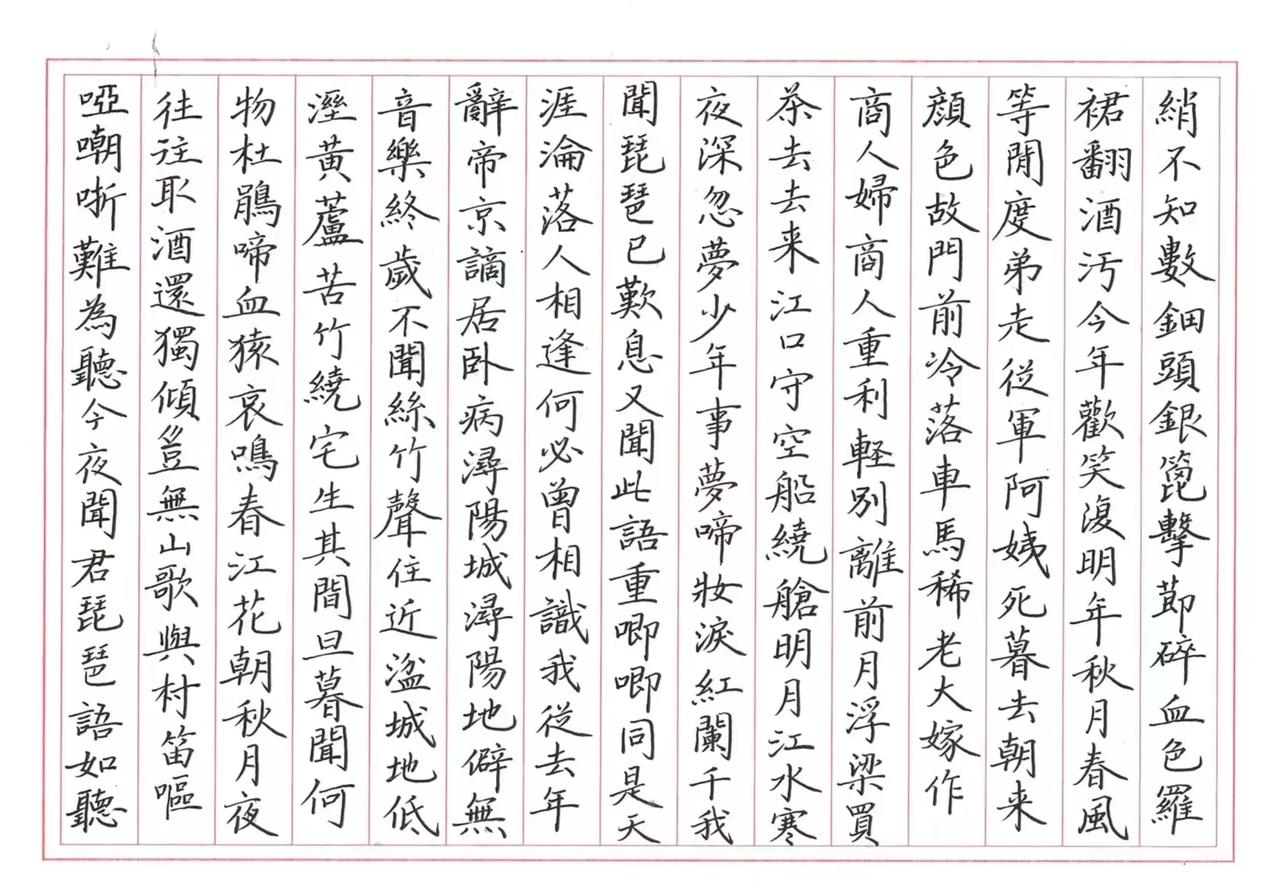 綃不知數鈿頭銀篦擊節碎血色羅
裙翻酒汚今年歡笑復明年秋月春風
等閒度弟走從軍阿姨死暮去朝来
顔色故門前冷落車馬稀老大嫁作
商人婦商人重利軽別離前月浮梁買
茶去去来江口守空船繞艙明月江水寒
夜深忽夢少年事夢啼妝淚紅闌干我
聞琵琶已歎息又聞此語重唧唧同是天
涯淪落人相逢何必曾相識我從去年
辭帝京謫居卧病潯陽城潯陽地僻無
音樂終歲不聞絲竹聲住近湓城地低
溼黄蘆苦竹繞宅生其間旦暮聞何
物杜鵑啼血猿哀鳴春江花朝秋月夜
往往取酒還獨傾豈無山歌與村笛嘔
啞嘲哳難為聽今夜聞君琵琶語如聽